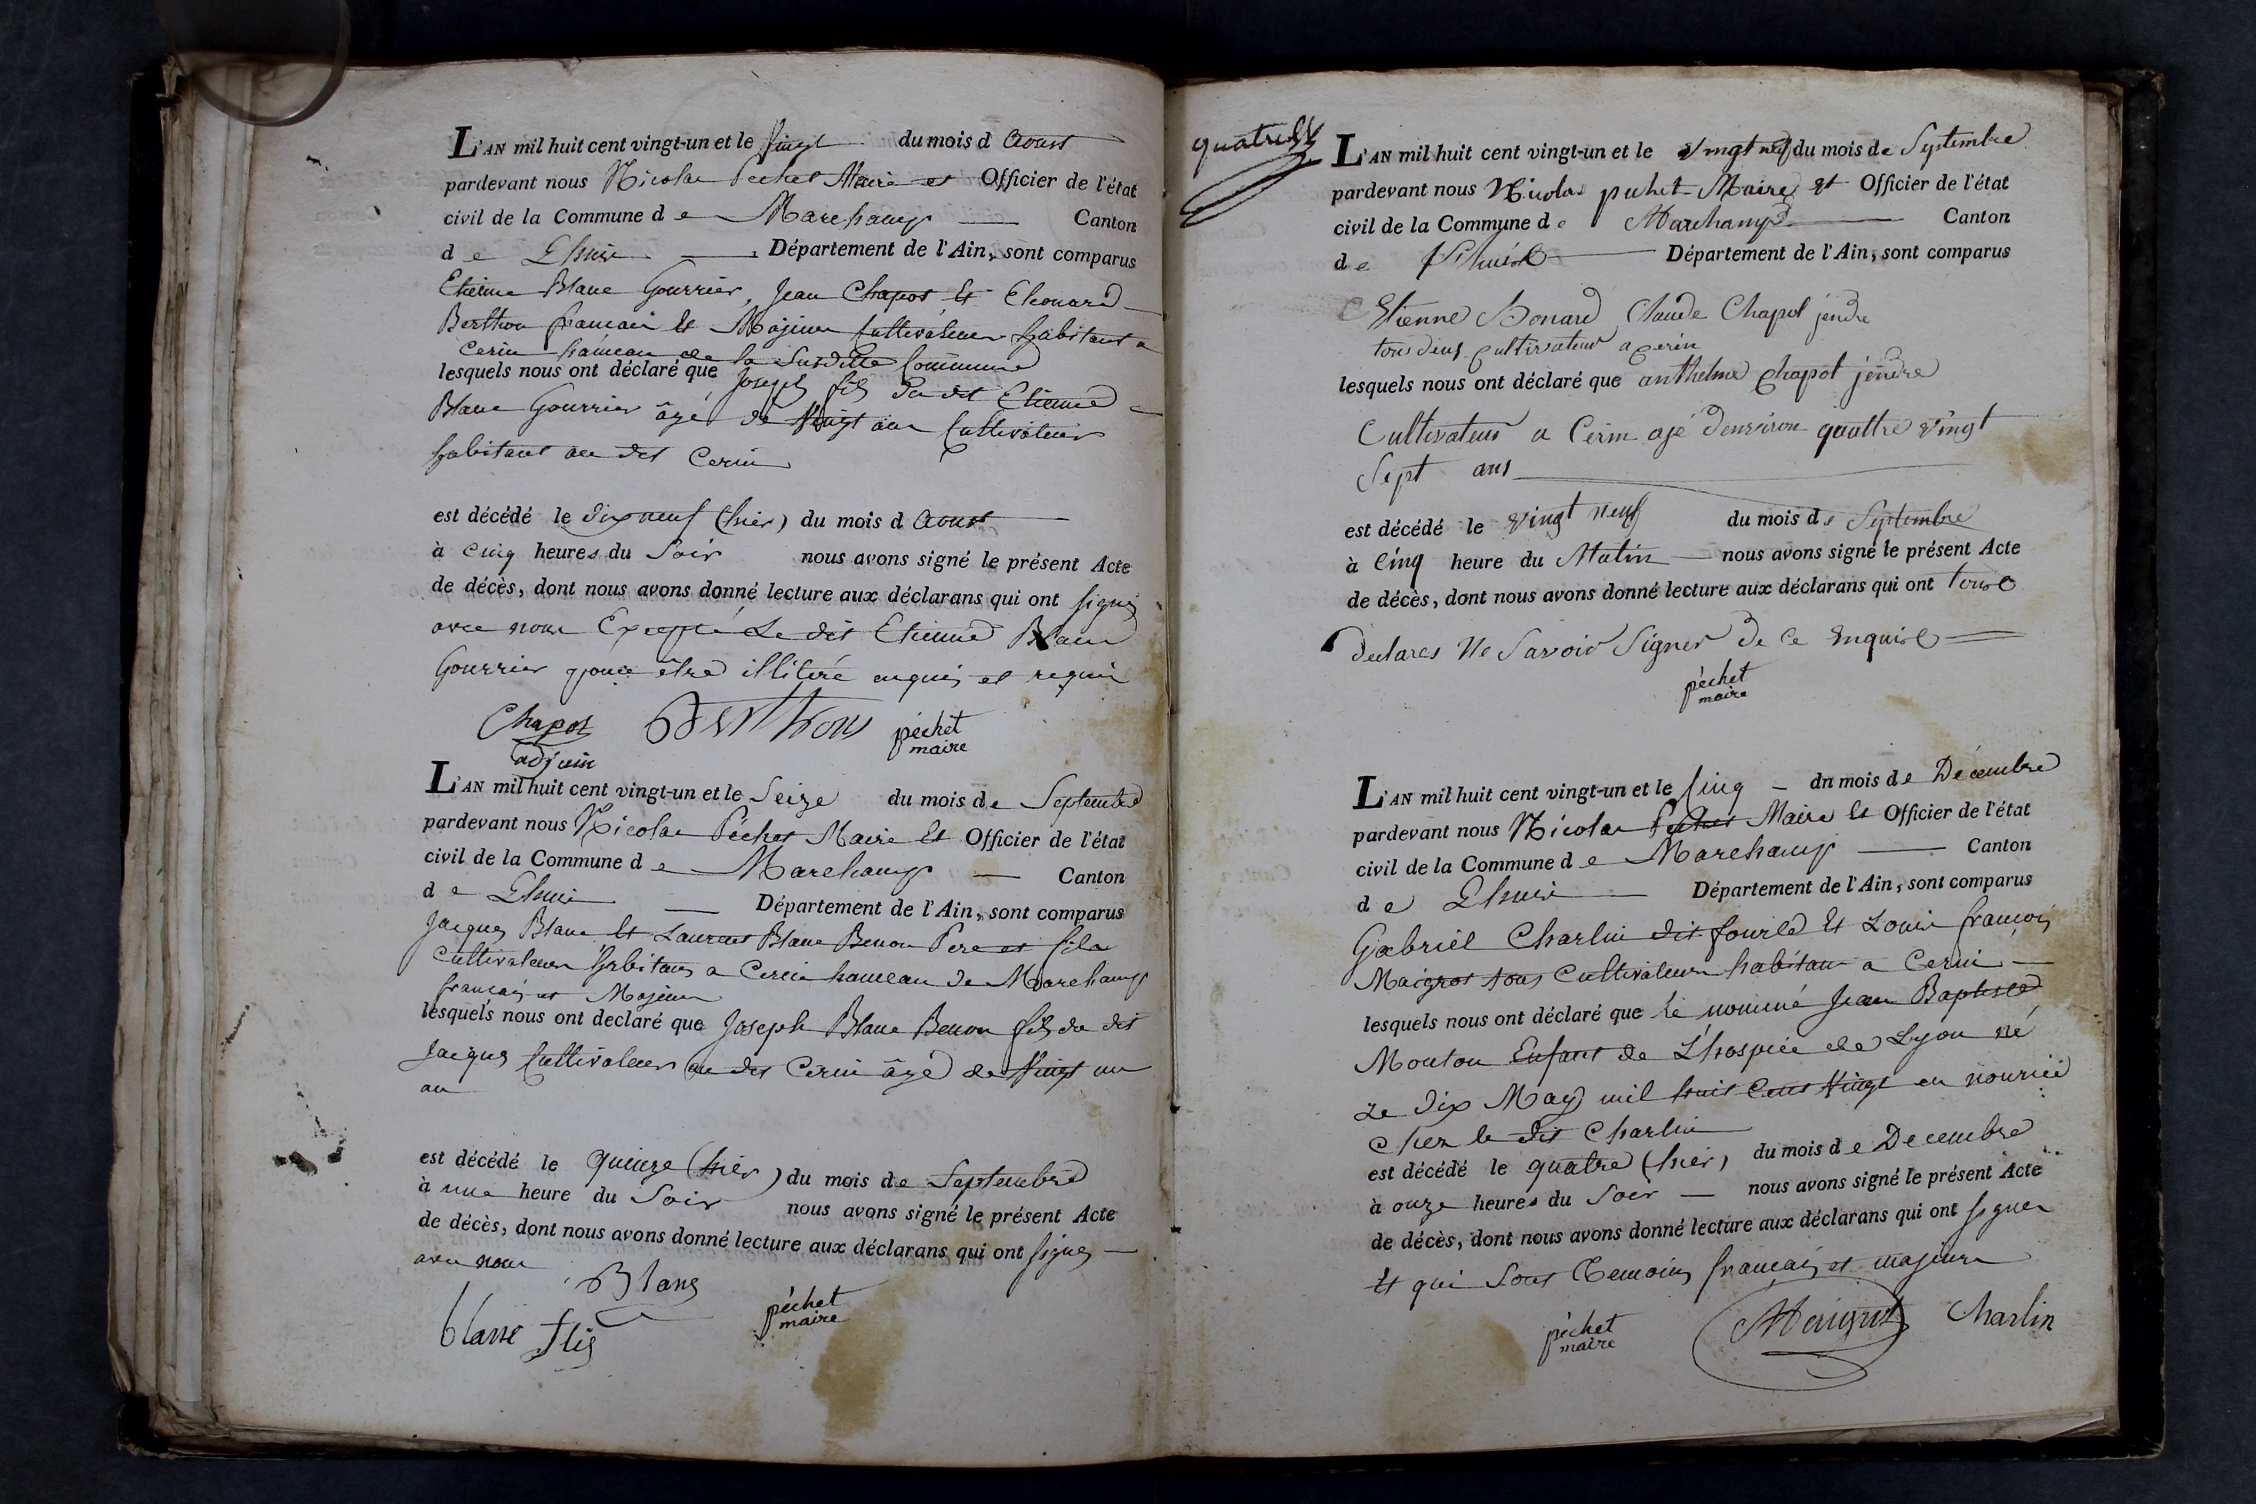 L'AN mil huit cent vingt-un et le vingt du mois d aoust
pardevant nous Nicolas Péchet Maire et Officier de l'état
civil de la Commune d e Marchamp Canton
d e Lhuis Département de l'Ain, sont comparus
Etienne Blanc Gourrier, Jean Chapot Et Eleonard
Berthon francais Et Majeurs Cultivateurs habitant a
Cerin hameau de la susditte Commune
lesquels nous ont déclaré que Joseph fils du dit Etienne
Blanc Gourrier âgé de vingt ans Cultivateur
habitant au dit Cerin
est décédé le dix neuf (hier) du mois d aoust
à cinq heures du Soir nous avons signé le présent Acte
de décès, dont nous avons donné lecture aux déclarans qui ont signés
avec nous Excepté Le dit Etienne Blanc
Gourrier pour être illitéré enquis et requis
Chapot Berthon péchet
adjoin maire
L'AN mil huit cent vingt-un et le Seize du mois de Septembre
pardevant nous Nicolas Péchet Maire Et Officier de l'état
civil de la Commune d e Marchamp Canton
d e Lhuis Département de l'Ain, sont comparus
Jacques Blanc Et Laurent Blanc Benon Pere et fils
Cultivateurs habitans a Cerin hameau de Marchamp
francais et Majeurs
lesquels nous ont declaré que Joseph Blanc Benon fils du dit
Jacques Cultivateur au dit Cerin âgé de Vingt un
an
est décédé le quinze (hier) du mois de Septembre
à une heure du Soir nous avons signé le présent Acte
de décès, dont nous avons donné lecture aux déclarans qui ont signés
avec nous
Blanc
blanc flis péchet
maire
quatre
L'AN mil huit cent vingt-un et le vingt neuf du mois de Septembre
pardevant nous Nicolas pechet Maire et Officier de l'état
civil de la Commune d e Marchamp Canton
d e Lhuis Département de l'Ain, sont comparus
Etienne Bonard Claude Chapot jendre
tous deux cultivateur a cerin
lesquels nous ont déclaré que anthelme Chapot jendre
Cultivateur a Cerin ajé denviron quattre vingt
Sept ans
est décédé le vingt neuf du mois de Septembre
à Cinq heure du Matin nous avons signé le présent Acte
de décès, dont nous avons donné lecture aux déclarans qui ont tous
declares Ne Savoir Signer de ce Enquis
péchet
maire
L'AN mil huit cent vingt-un et le Cinq du mois de Décembre
pardevant nous Nicolas Pechet Maire Et Officier de l'état
civil de la Commune d e Marchamp Canton
d e Lhuis Département de l'Ain, sont comparus
Gabriel Charlin dit fourle Et Louis francois
Maigrot tous Cultivateurs habitans a Cerin
lesquels nous ont déclaré que le nommé Jean Baptiste
Mouton Enfant de L'hospice de Lyon né
Le dix May mil huit Cent Vingt en nourice
Chez le dit Charlin
est décédé le quatre (hier) du mois d e Decembre
à onze heures du Soir nous avons signé le présent Acte
de décès, dont nous avons donné lecture aux déclarans qui ont signer
Et qui Sont Temoins francais et majeurs
péchet Maigrot Charlin
maire